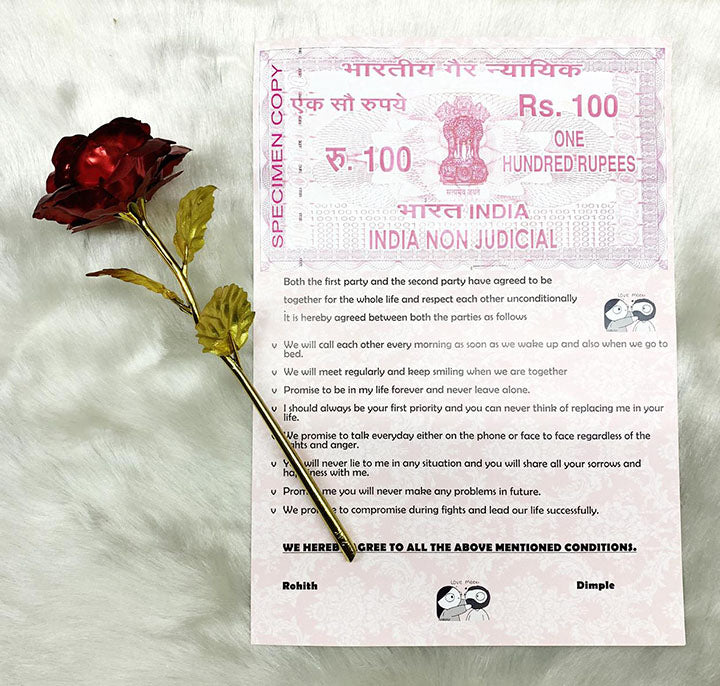 SPECIMEN COPY
भारतीय गैर न्यायिक
एक सौ रुपये
Rs. 100
रु. 100
ONE
HUNDRED RUPEES
सत्यमेव जयते
भारत INDIA
INDIA NON JUDICIAL
Both the first party and the second party have agreed to be
together for the whole life and respect each other unconditionally
It is hereby agreed between both the parties as follows
LOVE MEEH
v We will call each other every morning as soon as we wake up and also when we go to
bed.
v We will meet regularly and keep smiling when we are together
v Promise to be in my life forever and never leave alone.
v I should always be your first priority and you can never think of replacing me in your
life.
v We promise to talk everyday either on the phone or face to face regardless of the
and anger.
v will never lie to me in any situation and you will share all your sorrows and
with me.
v me you will never make any problems in future.
v We to compromise during fights and lead our life successfully.
WE TO ALL THE ABOVE MENTIONED CONDITIONS.
Rohith
LOVE MEEH
Dimple